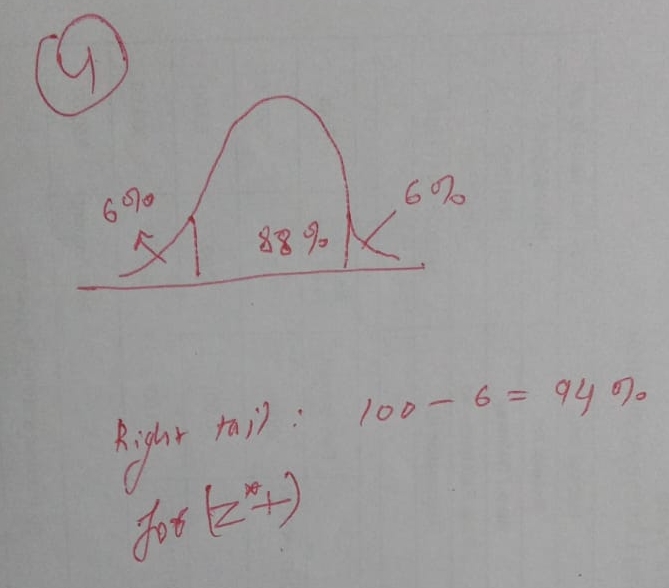 4
6%
6%
88%
Right tail: 100 - 6 = 94%
for (z*+)